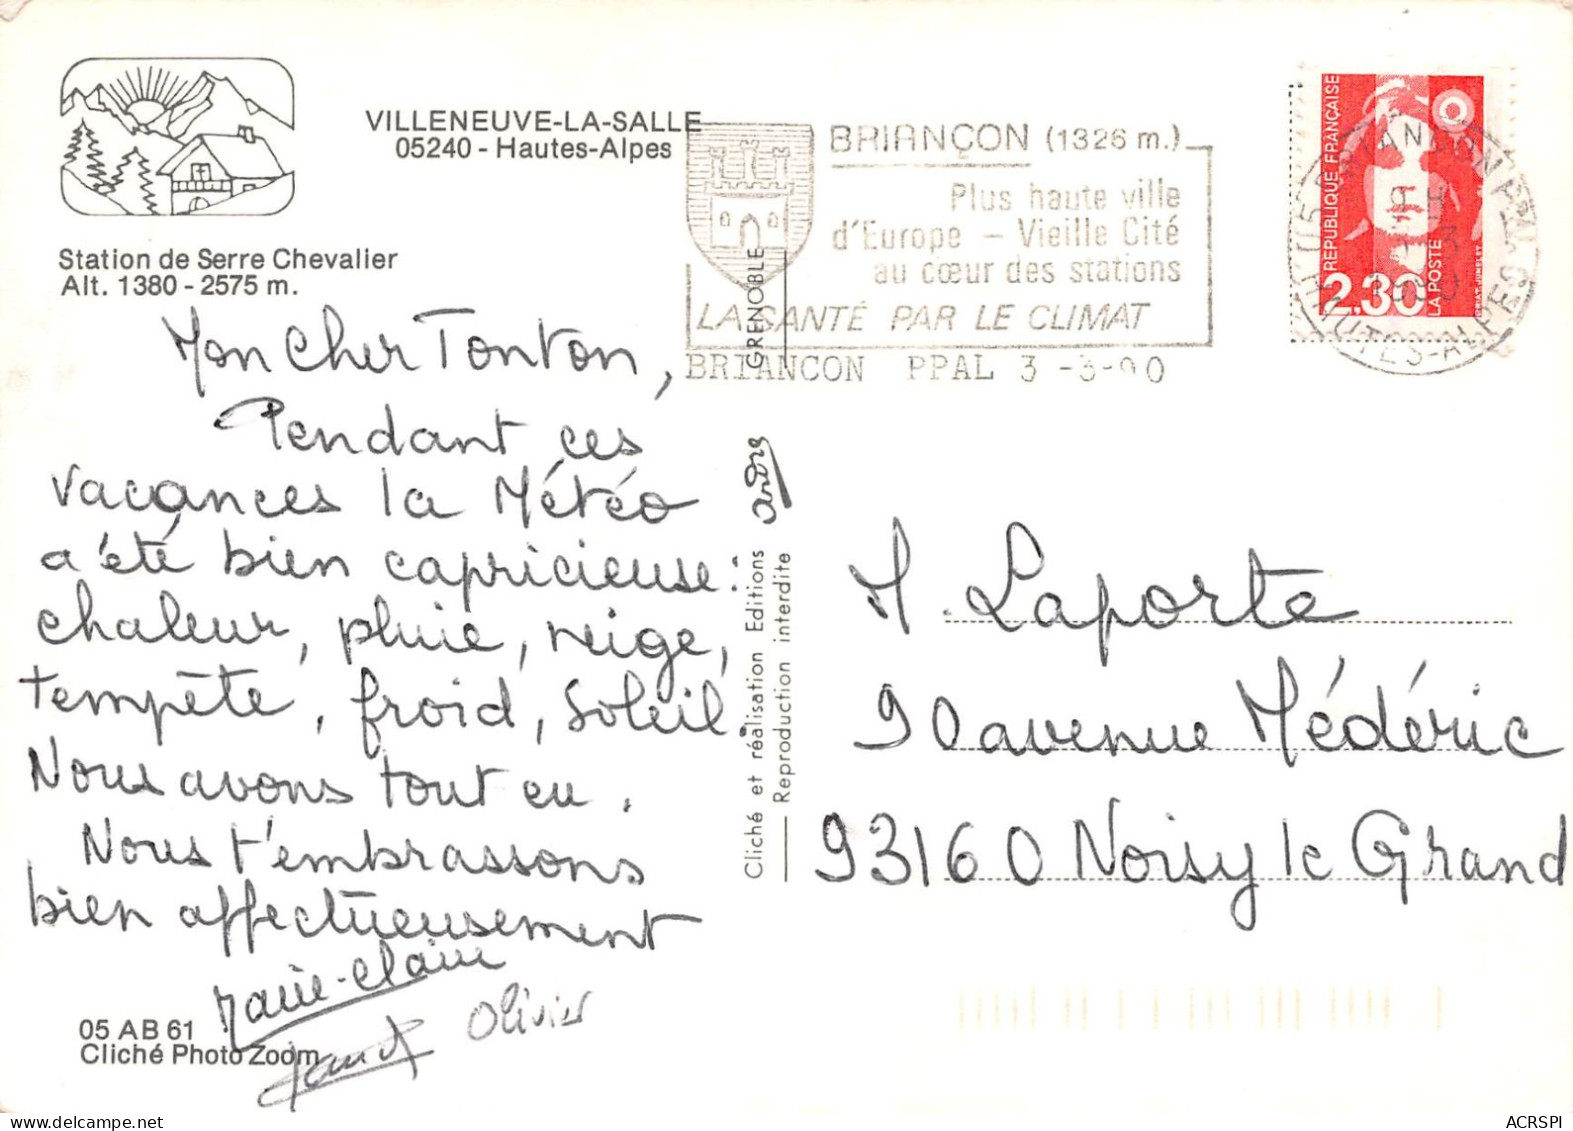 VILLENEUVE-LA-SALLE
05240 - Hautes-Alpes
Station de Serre Chevalier
Alt. 1380 - 2575 m.
BRIANÇON (1326 m.)
Plus haute ville
d'Europe - Vieille Cité
au cœur des stations
LA SANTÉ PAR LE CLIMAT
BRIANCON PPAL 3 -3-90
REPUBLIQUE FRANÇAISE
2.30
LA POSTE
HAUTES-ALPES
Mon Cher Tonton,
Pendant ces
vacances la Météo
a été bien capricieuse :
chaleur, pluie, neige,
tempête, froid, soleil.
Nous avons tout eu.
Nous t'embrassons
bien affectueusement
Marie-Claire
Olivier
GRENOBLE
André
Cliché et réalisation Editions
Reproduction interdite
M. Laporte
90 avenue Médéric
93160 Noisy le Grand
05 AB 61
Cliché Photo Zoom
ACRSPI